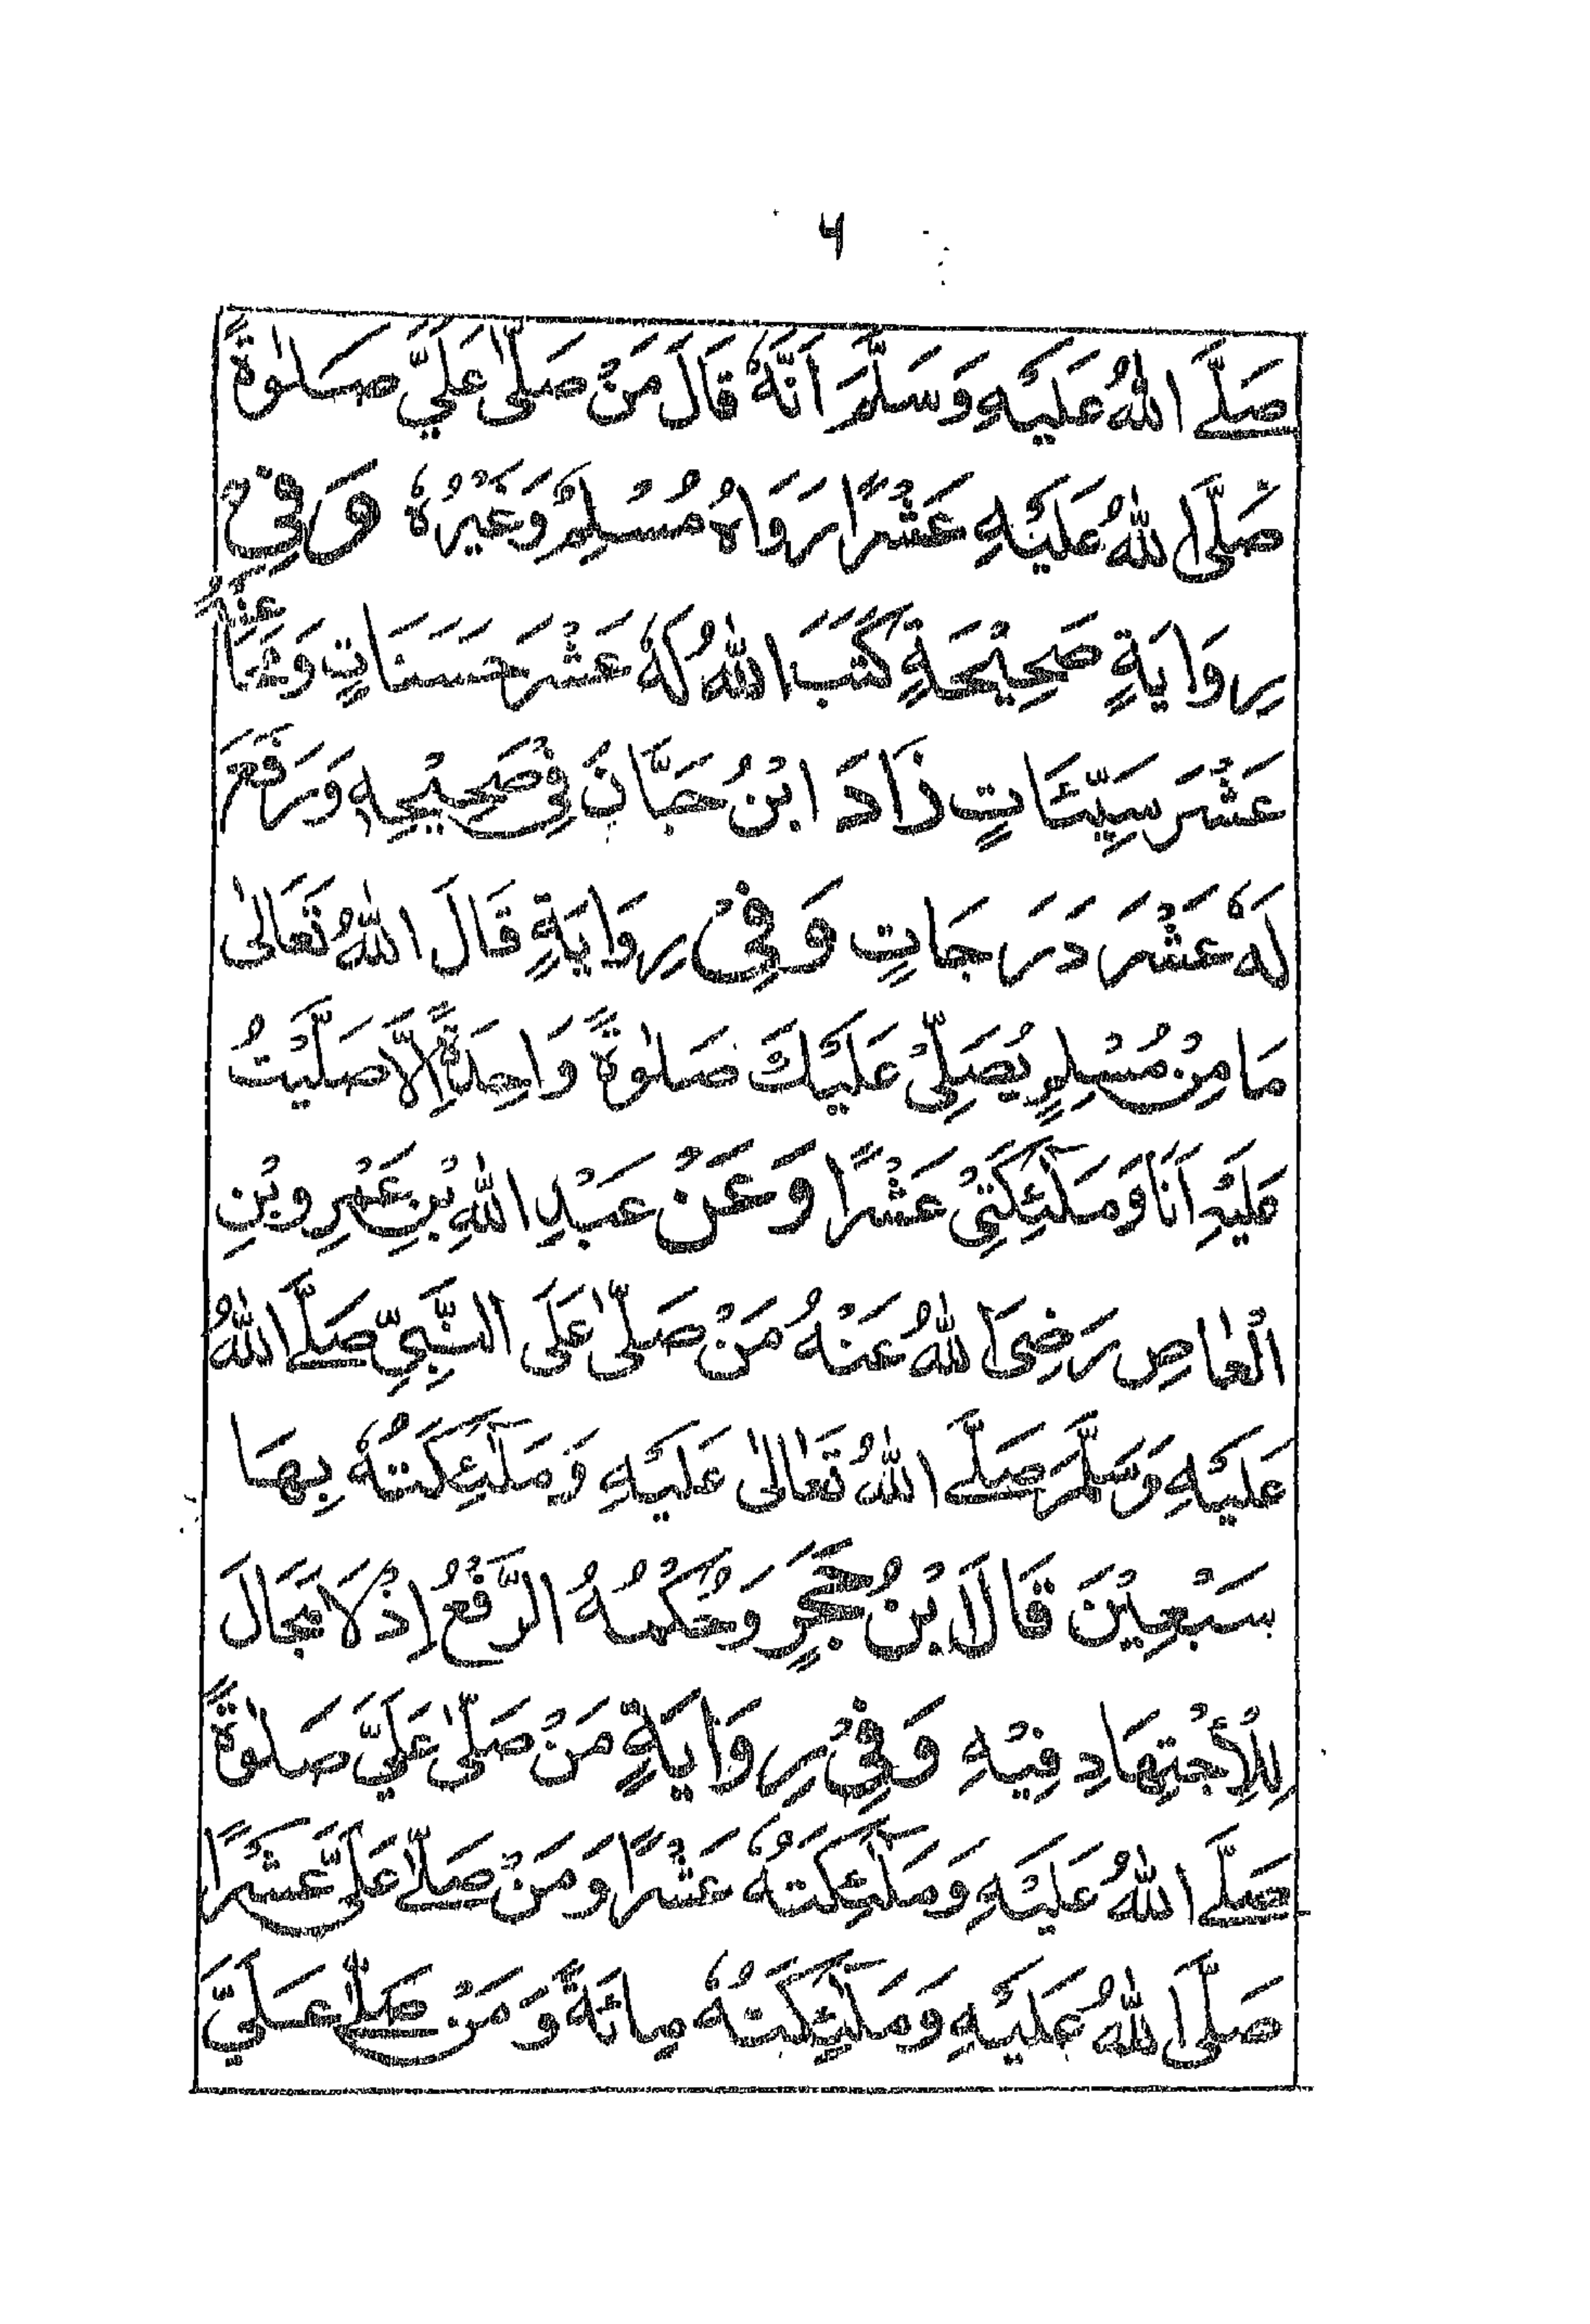 ۶
صَلَّے اللّٰهُ عَلَيْهِ وَسَلَّمَ اَنَّهٗ قَالَ مَنْ صَلّٰى عَلَيَّ صَلٰوةً
صَلَّى اللّٰهُ عَلَيْهِ عَشْرًا رَوَاهُ مُسْلِمٌ وَغَيْرُهٗ وَفِيْ
رِوَايَةٍ صَحِيْحَةٍ كَتَبَ اللّٰهُ لَهٗ عَشْرَ حَسَنَاتٍ وَمَحَا عَنْهُ
عَشْرَ سَيِّئَاتٍ زَادَ ابْنُ حَبَّانَ فِيْ صَحِيْحِهٖ وَرَفَعَ
لَهٗ عَشْرَ دَرَجَاتٍ وَفِيْ رِوَايَةٍ قَالَ اللّٰهُ تَعَالٰى
مَا مِنْ مُسْلِمٍ يُصَلِّيْ عَلَيْكَ صَلٰوةً وَاحِدَةً اِلَّا صَلَّيْتُ
عَلَيْهِ اَنَا وَمَلٰٓئِكَتِيْ عَشْرًا وَعَنْ عَبْدِ اللّٰهِ بْنِ عَمْرِو بْنِ
الْعَاصِ رَضِىَ اللّٰهُ عَنْهُ مَنْ صَلّٰى عَلَى النَّبِيِّ صَلَّے اللّٰهُ
عَلَيْهِ وَسَلَّمَ صَلَّے اللّٰهُ تَعَالٰى عَلَيْهِ وَمَلٰٓئِكَتُهٗ بِهَا
سَبْعِيْنَ قَالَ ابْنُ حَجَرٍ وَحُكْمُهُ الرَّفْعُ اِذْ لَا مَجَالَ
لِلْاِجْتِهَادِ فِيْهِ وَفِيْ رِوَايَةٍ مَنْ صَلّٰى عَلَيَّ صَلٰوةً
صَلَّے اللّٰهُ عَلَيْهِ وَمَلٰٓئِكَتُهٗ عَشْرًا وَمَنْ صَلّٰے عَلَيَّ عَشْرًا
صَلَّى اللّٰهُ عَلَيْهِ وَمَلٰٓئِكَتُهٗ مِائَةً وَمَنْ صَلّٰے عَلَيَّ